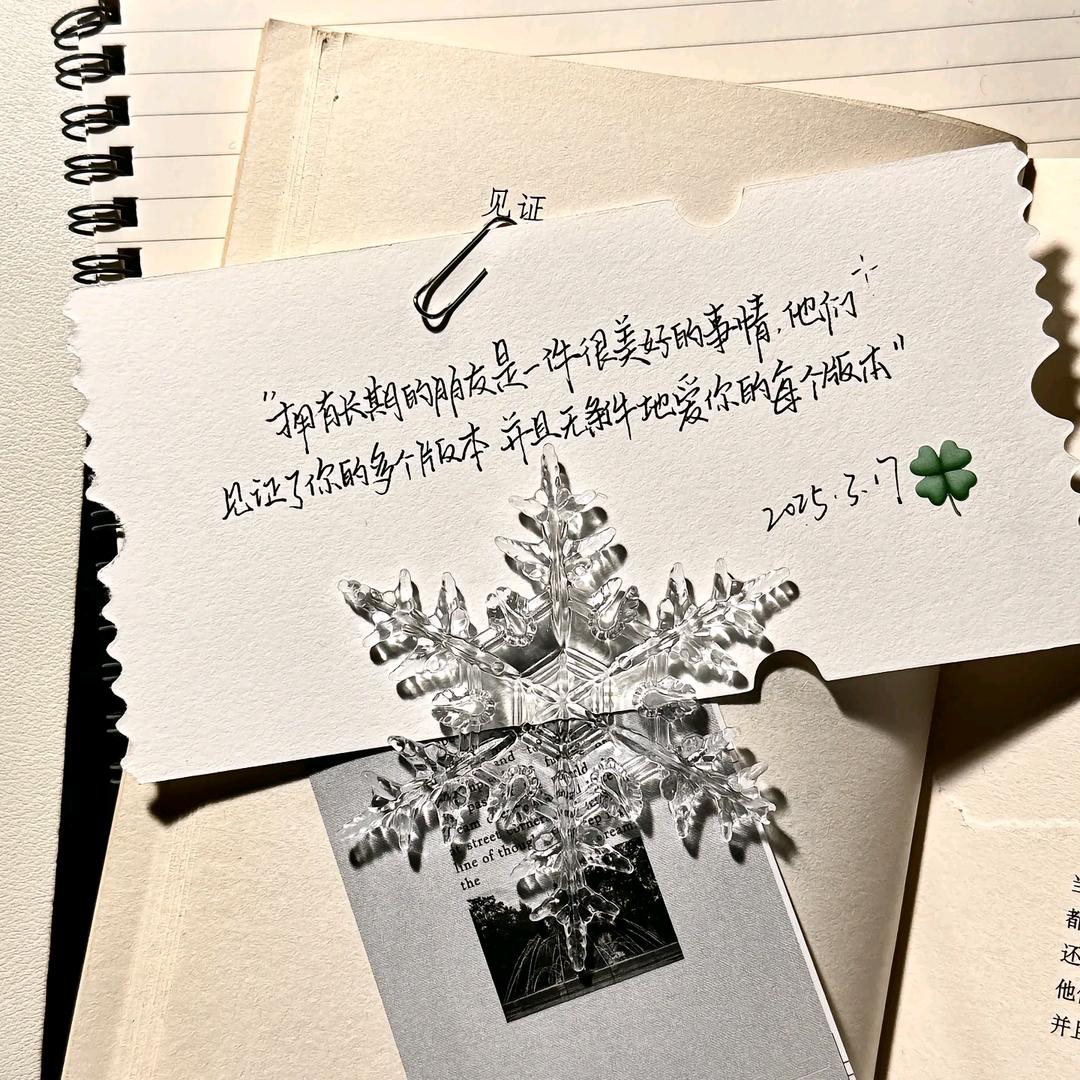 见证
"拥有长期的朋友是一件很美好的事情，他们
见证了你的多个版本 并且无条件地爱你的每个版本"
2025.3.17
and
up
eas
eam
street corner
line of thoug
the
ld
eep
dream
当
都
还
他们
并且